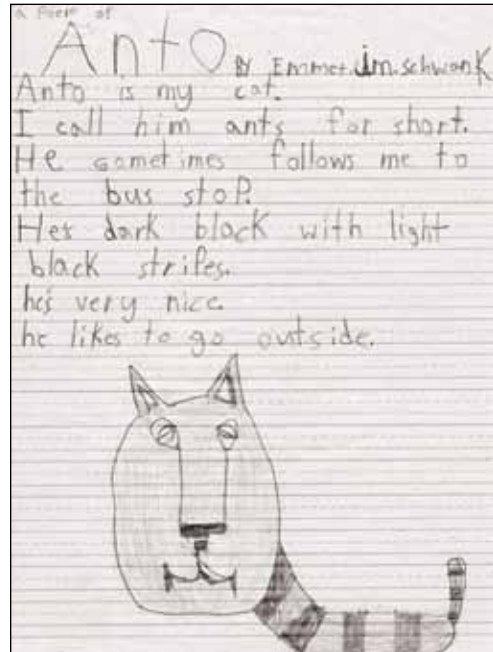 a Poem of
Anto By Emmet.Jm.schwonk
Anto is my cat.
I call him ants for short.
He sometimes follows me to
the bus stoP.
Hes dark black with light
black stripes.
he's very nice.
he likes to go outside.